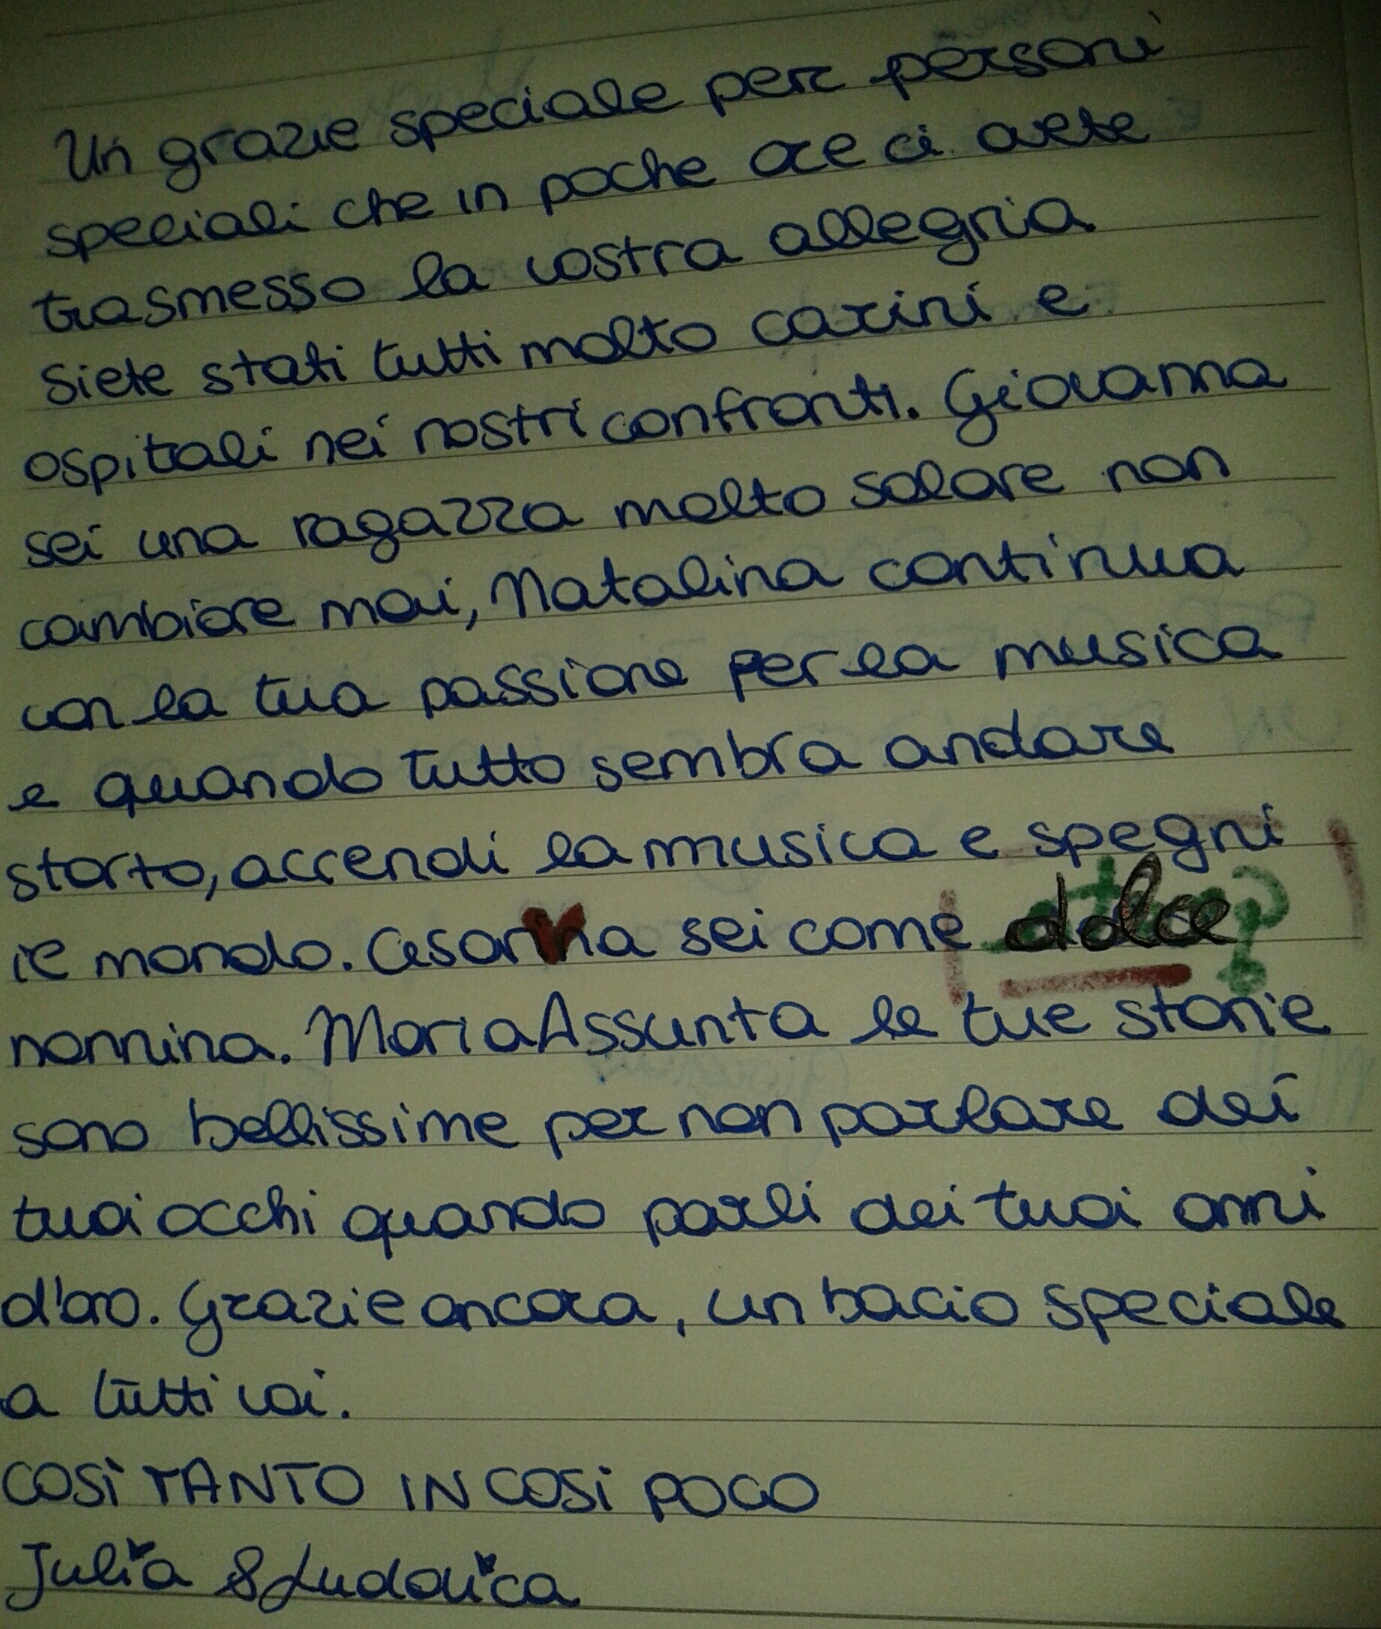 Un grazie speciale per personi
speciali che in poche ore ci avete
trasmesso la vostra allegria
siete stati tutti molto carini e
ospitali nei nostri confronti. Giovanna
sei una ragazza molto solare non
cambiare mai, Natalina continua
con la tua passione per la musica
e quando tutto sembra andare
storto, accendi la musica e spegni
il mondo. Cesarina sei come dolce
nonnina. MariaAssunta le tue storie
sono bellissime per non parlare dei
tuoi occhi quando parli dei tuoi anni
d'oro. Grazie ancora, un bacio speciale
a tutti voi.
COSì TANTO IN COSì POCO
Julia & Ludovica